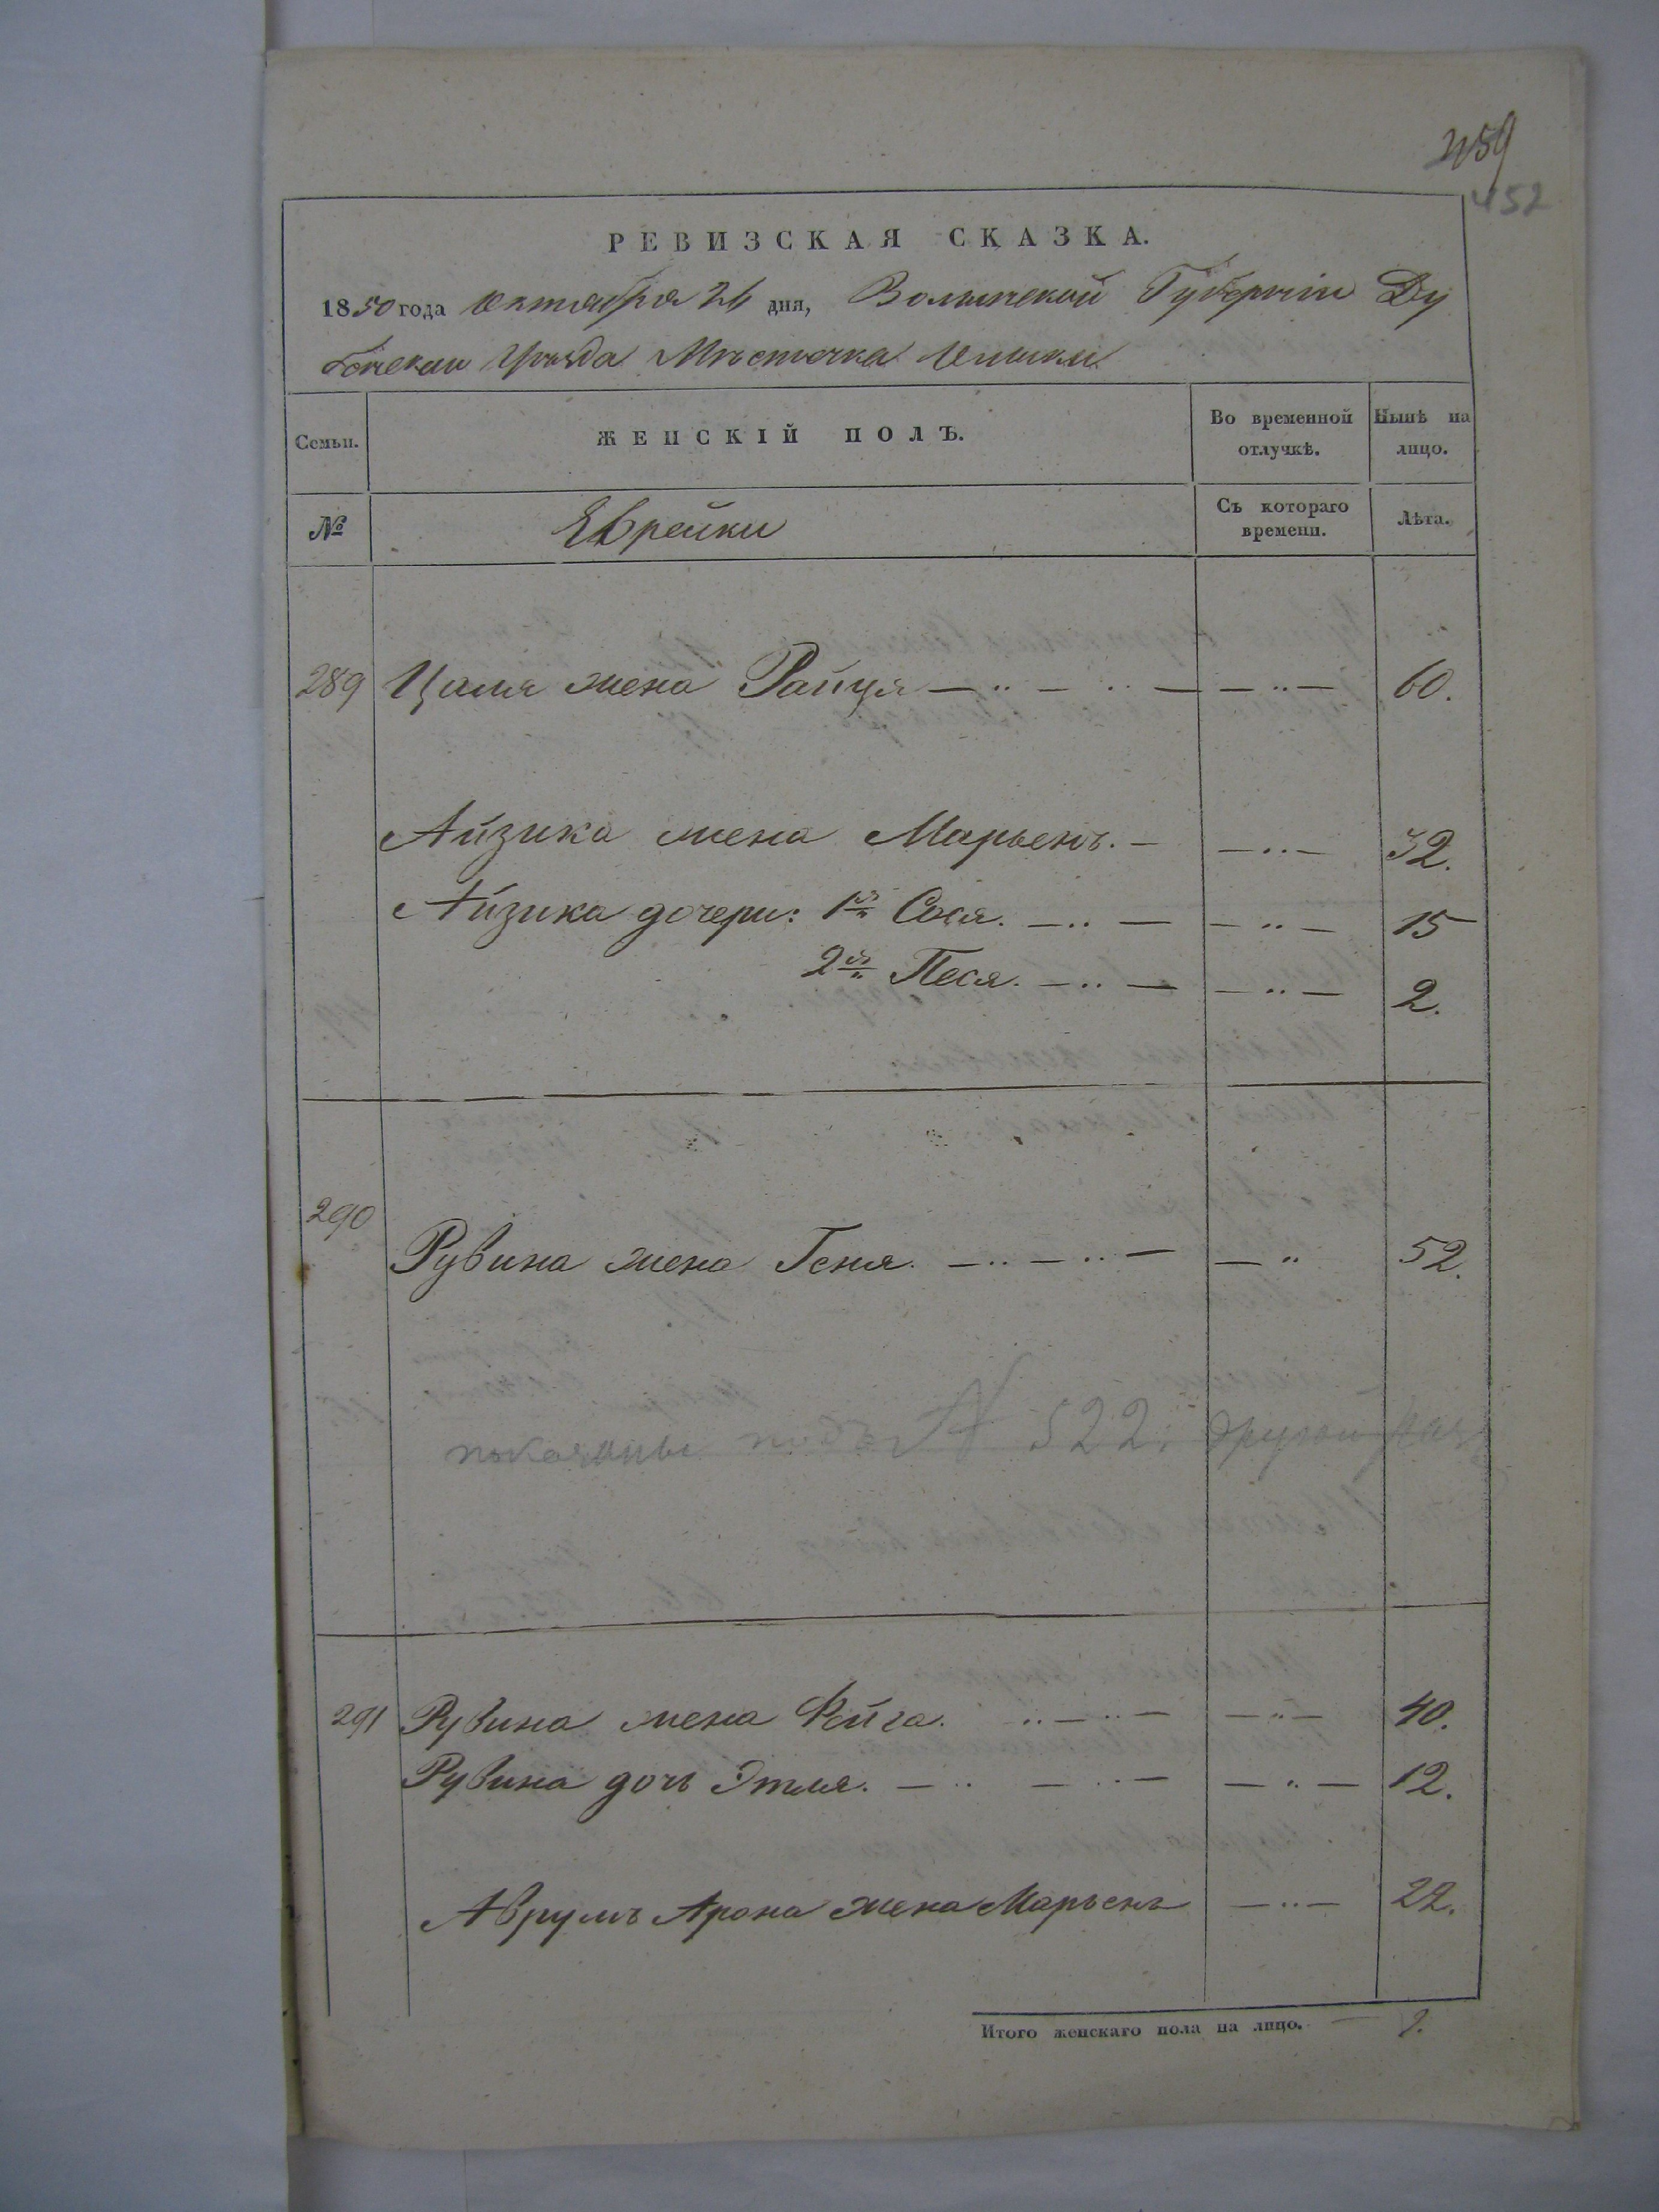 459
452
РЕВИЗСКАЯ СКАЗКА.
1850 года октября 26 дня, Волынской Губернiи Ду
бенскаи Уѣзда Мѣстечка
Семьи. ЖЕНСКIЙ ПОЛЪ. Во временной отлучкѣ. Нынѣ на лицо.
№ Еврейки Съ котораго времени. Лѣта.
289 Цаля жена Райця — .. — .. — — .. — 60.
Айзика жена Марьемъ. — — .. — 32.
Айзика дочери: 1я Сося. — .. — — .. — 15
2я Песя. — .. — — .. — 2.
290
Рувина жена Геня. — .. — .. — — .. 52.
показаны подъ № 522:
291 Рувина жена Фейга. .. — .. — — .. — 40.
Рувина дочь Этля. — .. — .. — — .. — 12.
Аврумъ Арона жена Марьемъ — .. — 22.
Итого женскаго пола на лицо. —